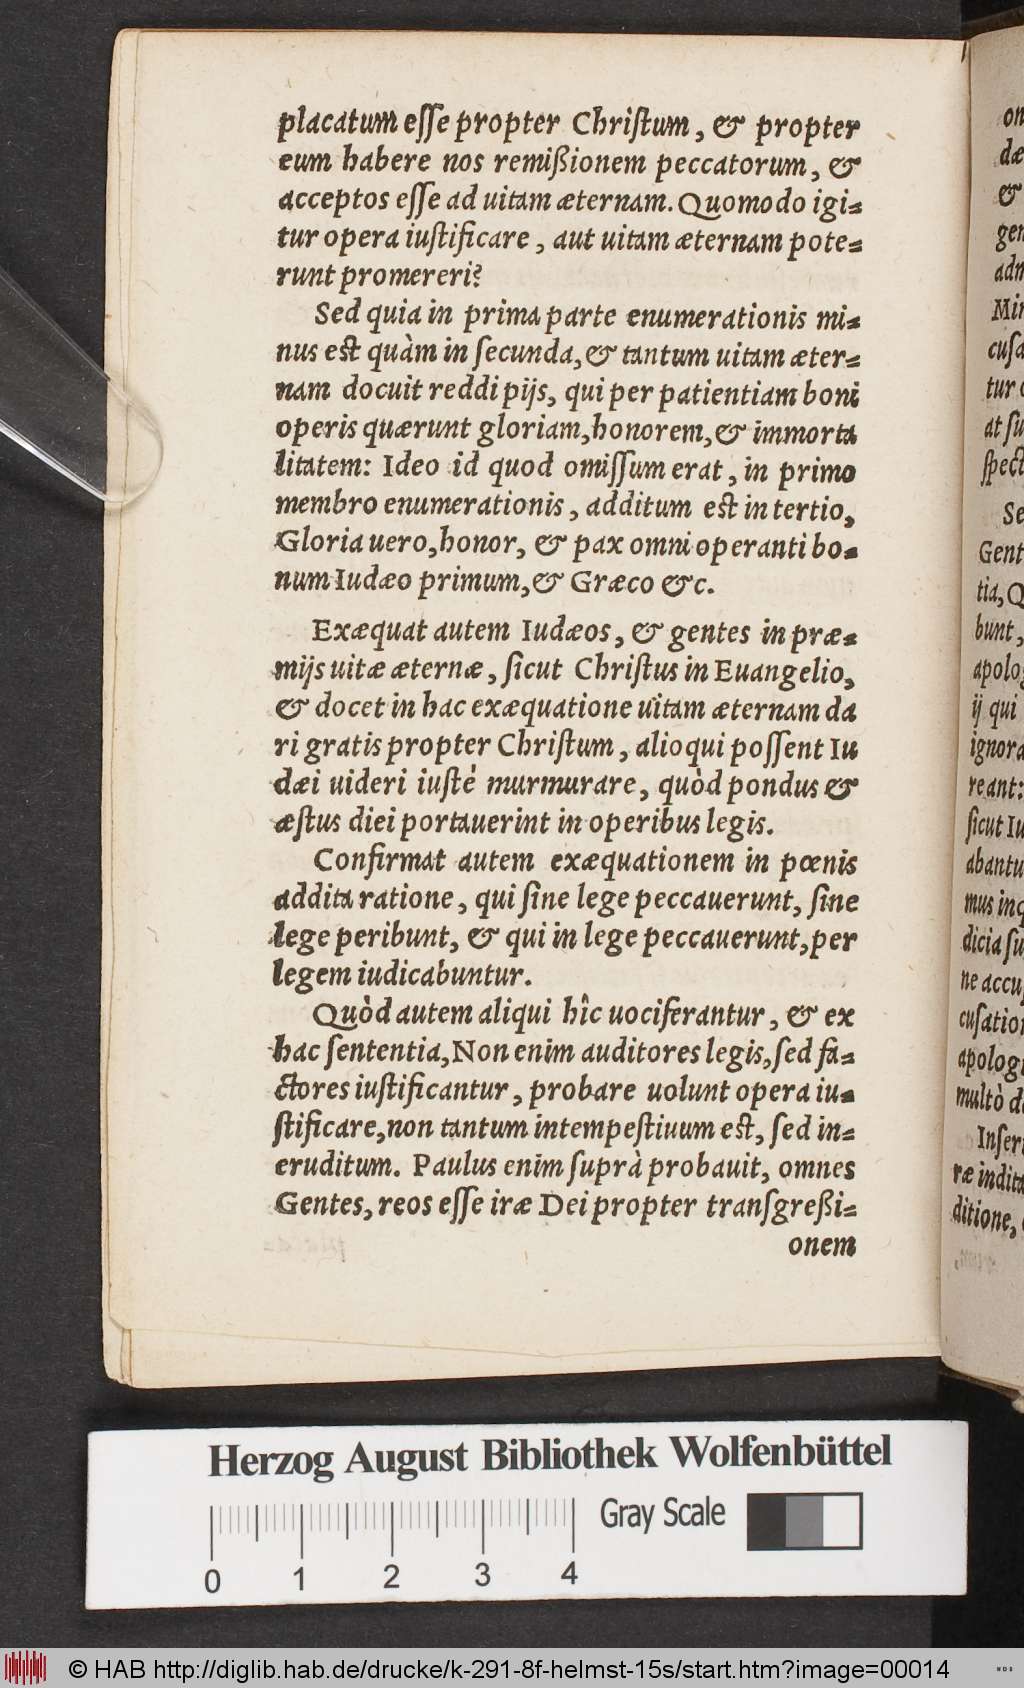 placatum eſſe propter Chriſtum, & propter
eum habere nos remißionem peccatorum, &
acceptos eſſe ad uitam æternam. Quomodo igi=
tur opera iuſtificare, aut uitam æternam pote=
runt promereri?
Sed quia in prima parte enumerationis mi=
nus est quàm in ſecunda, & tantum uitam æter=
nam docuit reddi pijs, qui per patientiam boni
operis quærunt gloriam, honorem, & immorta
litatem: Ideo id quod omiſſum erat, in primo
membro enumerationis, additum est in tertio,
Gloria uero, honor, & pax omni operanti bo=
num Iudæo primum, & Græco &c.
Exæquat autem Iudæos, & gentes in præ=
mijs uitæ æternæ, ſicut Chriſtus in Euangelio,
& docet in hac exæquatione uitam æternam da
ri gratis propter Chriſtum, alioqui poſſent Iu
dæi uideri iuſtè murmurare, quòd pondus &
æſtus diei portauerint in operibus legis.
Confirmat autem exæquationem in pœnis
addita ratione, qui ſine lege peccauerunt, ſine
lege peribunt, & qui in lege peccauerunt, per
legem iudicabuntur.
Quòd autem aliqui hîc uociferantur, & ex
hac ſententia, Non enim auditores legis, ſed fa=
ctores iuſtificantur, probare uolunt opera iu=
ſtificare, non tantum intempeſtiuum est, ſed in=
eruditum. Paulus enim ſuprà probauit, omnes
Gentes, reos eſſe iræ Dei propter tranſgreßi=
onem
on
dæ
&
gen
adm
Min
cuſa
tur
at ſu
ſpect
Se
Gent
tia, Q
bunt,
apolog
ij qui
ignora
reant:
ſicut Iu
abantu
mus inq
dicia ſu
ne accuſ
cuſation
apologi
multò d
Inſer
ræ indita
ditione,
Herzog August Bibliothek Wolfenbüttel
Gray Scale
0 1 2 3 4
© HAB http://diglib.hab.de/drucke/k-291-8f-helmst-15s/start.htm?image=00014